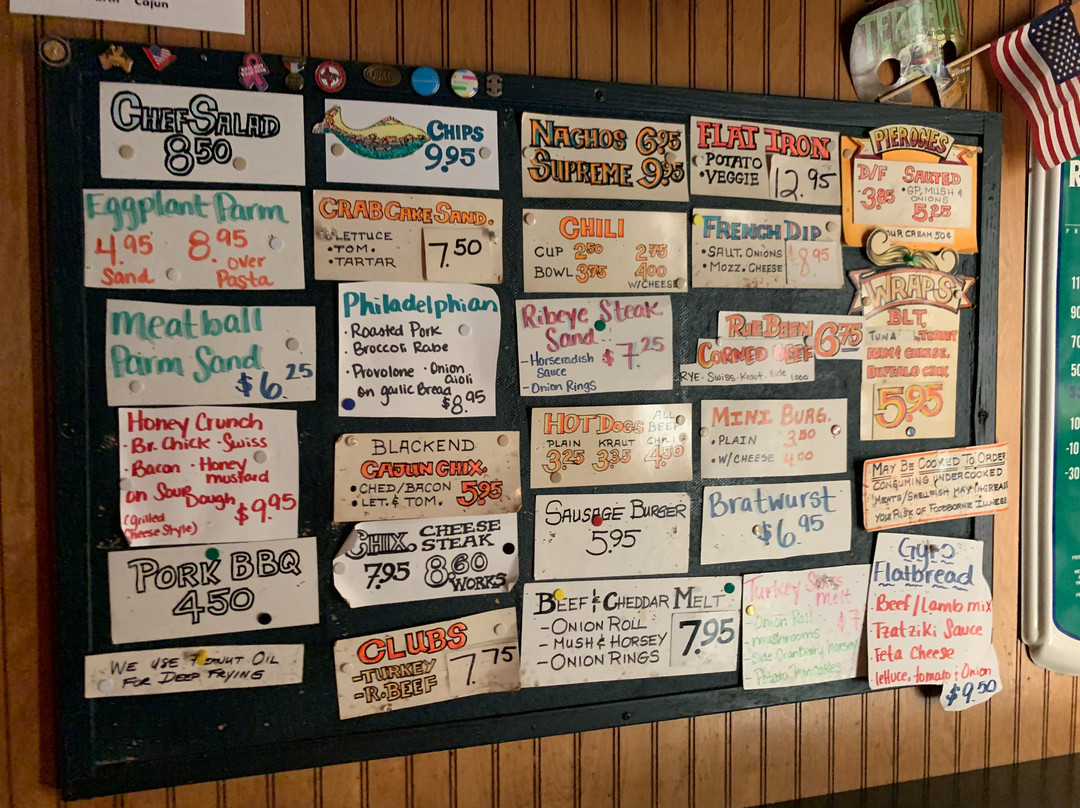 Cajun
CHEF SALAD
8.50
Eggplant Parm
4.95 8.95
Sand over
Pasta
Meatball
Parm Sand
$6.25
Honey Crunch
· Br. Chick · Swiss
· Bacon · Honey
mustard
on Sour Dough
(grilled
Cheese Style)
$9.95
PORK BBQ
4.50
WE USE PEANUT OIL
FOR DEEP FRYING
CHIPS
9.95
CRAB CAKE SAND.
• LETTUCE
• TOM.
• TARTAR
7.50
Philadelphian
· Roasted Pork
· Broccoli Rabe
· Provolone · Onion
aioli
on garlic Bread
$8.95
BLACKEND
CAJUN CHIX.
• CHED/BACON
• LET. & TOM. 5.95
CHIX. CHEESE
STEAK
7.95 8.60
WORKS
CLUBS
-TURKEY
-R.BEEF
7.75
NACHOS 6.95
SUPREME 9.95
CHILI
CUP 2.50 2.75
BOWL 3.75 4.00
W/CHEESE
Ribeye Steak
Sand.
-Horseradish
sauce
$7.25
-Onion Rings
HOT DOGS ALL
BEEF
PLAIN KRAUT CHILI
3.25 3.35 4.50
SAUSAGE BURGER
5.95
BEEF & CHEDDAR MELT
-ONION ROLL
-MUSH & HORSEY
-ONION RINGS
7.95
FLAT IRON
• POTATO
• VEGGIE
12.95
FRENCH DIP
• SAUT. ONIONS
• MOZZ. CHEESE
$8.95
RUEBEEN 6.75
CORNED BEEF
RYE-Swiss-Kraut-Side 1000
MINI BURG.
• PLAIN 3.50
• W/CHEESE 4.00
Bratwurst
$6.95
Turkey Swiss
melt
-Onion Roll $7
-mushrooms
-Side Cranberry horsey
-Potato Pancakes
PIEROGIES
D/F SALTED
3.85
• GP, MUSH &
ONIONS
5.25
SOUR CREAM 50¢
WRAPS
BLT,
TUNA, TURKEY
HAM & CHEESE,
BUFFALO CHIX
5.95
MAY BE COOKED TO ORDER
CONSUMING UNDERCOOKED
MEATS/SHELLFISH MAY INCREASE
YOUR RISK OF FOODBORNE ILLNESS
Gyro
Flatbread
-Beef/Lamb mix
-Tzatziki Sauce
-Feta Cheese
-lettuce, tomato & Onion
$9.50